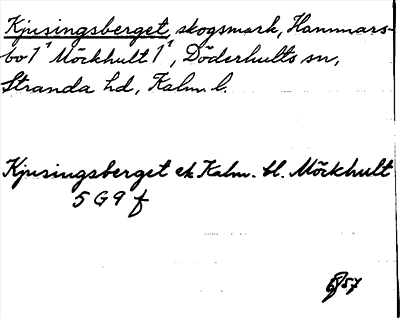 Kjusingsberget, skogsmark, Hammars-
bo 1¹ Möckhult 1¹, Döderhults sn,
Stranda hd, Kalm. l.
Kjusingsberget ek Kalm. bl. Möckhult
5 G 9 f
57